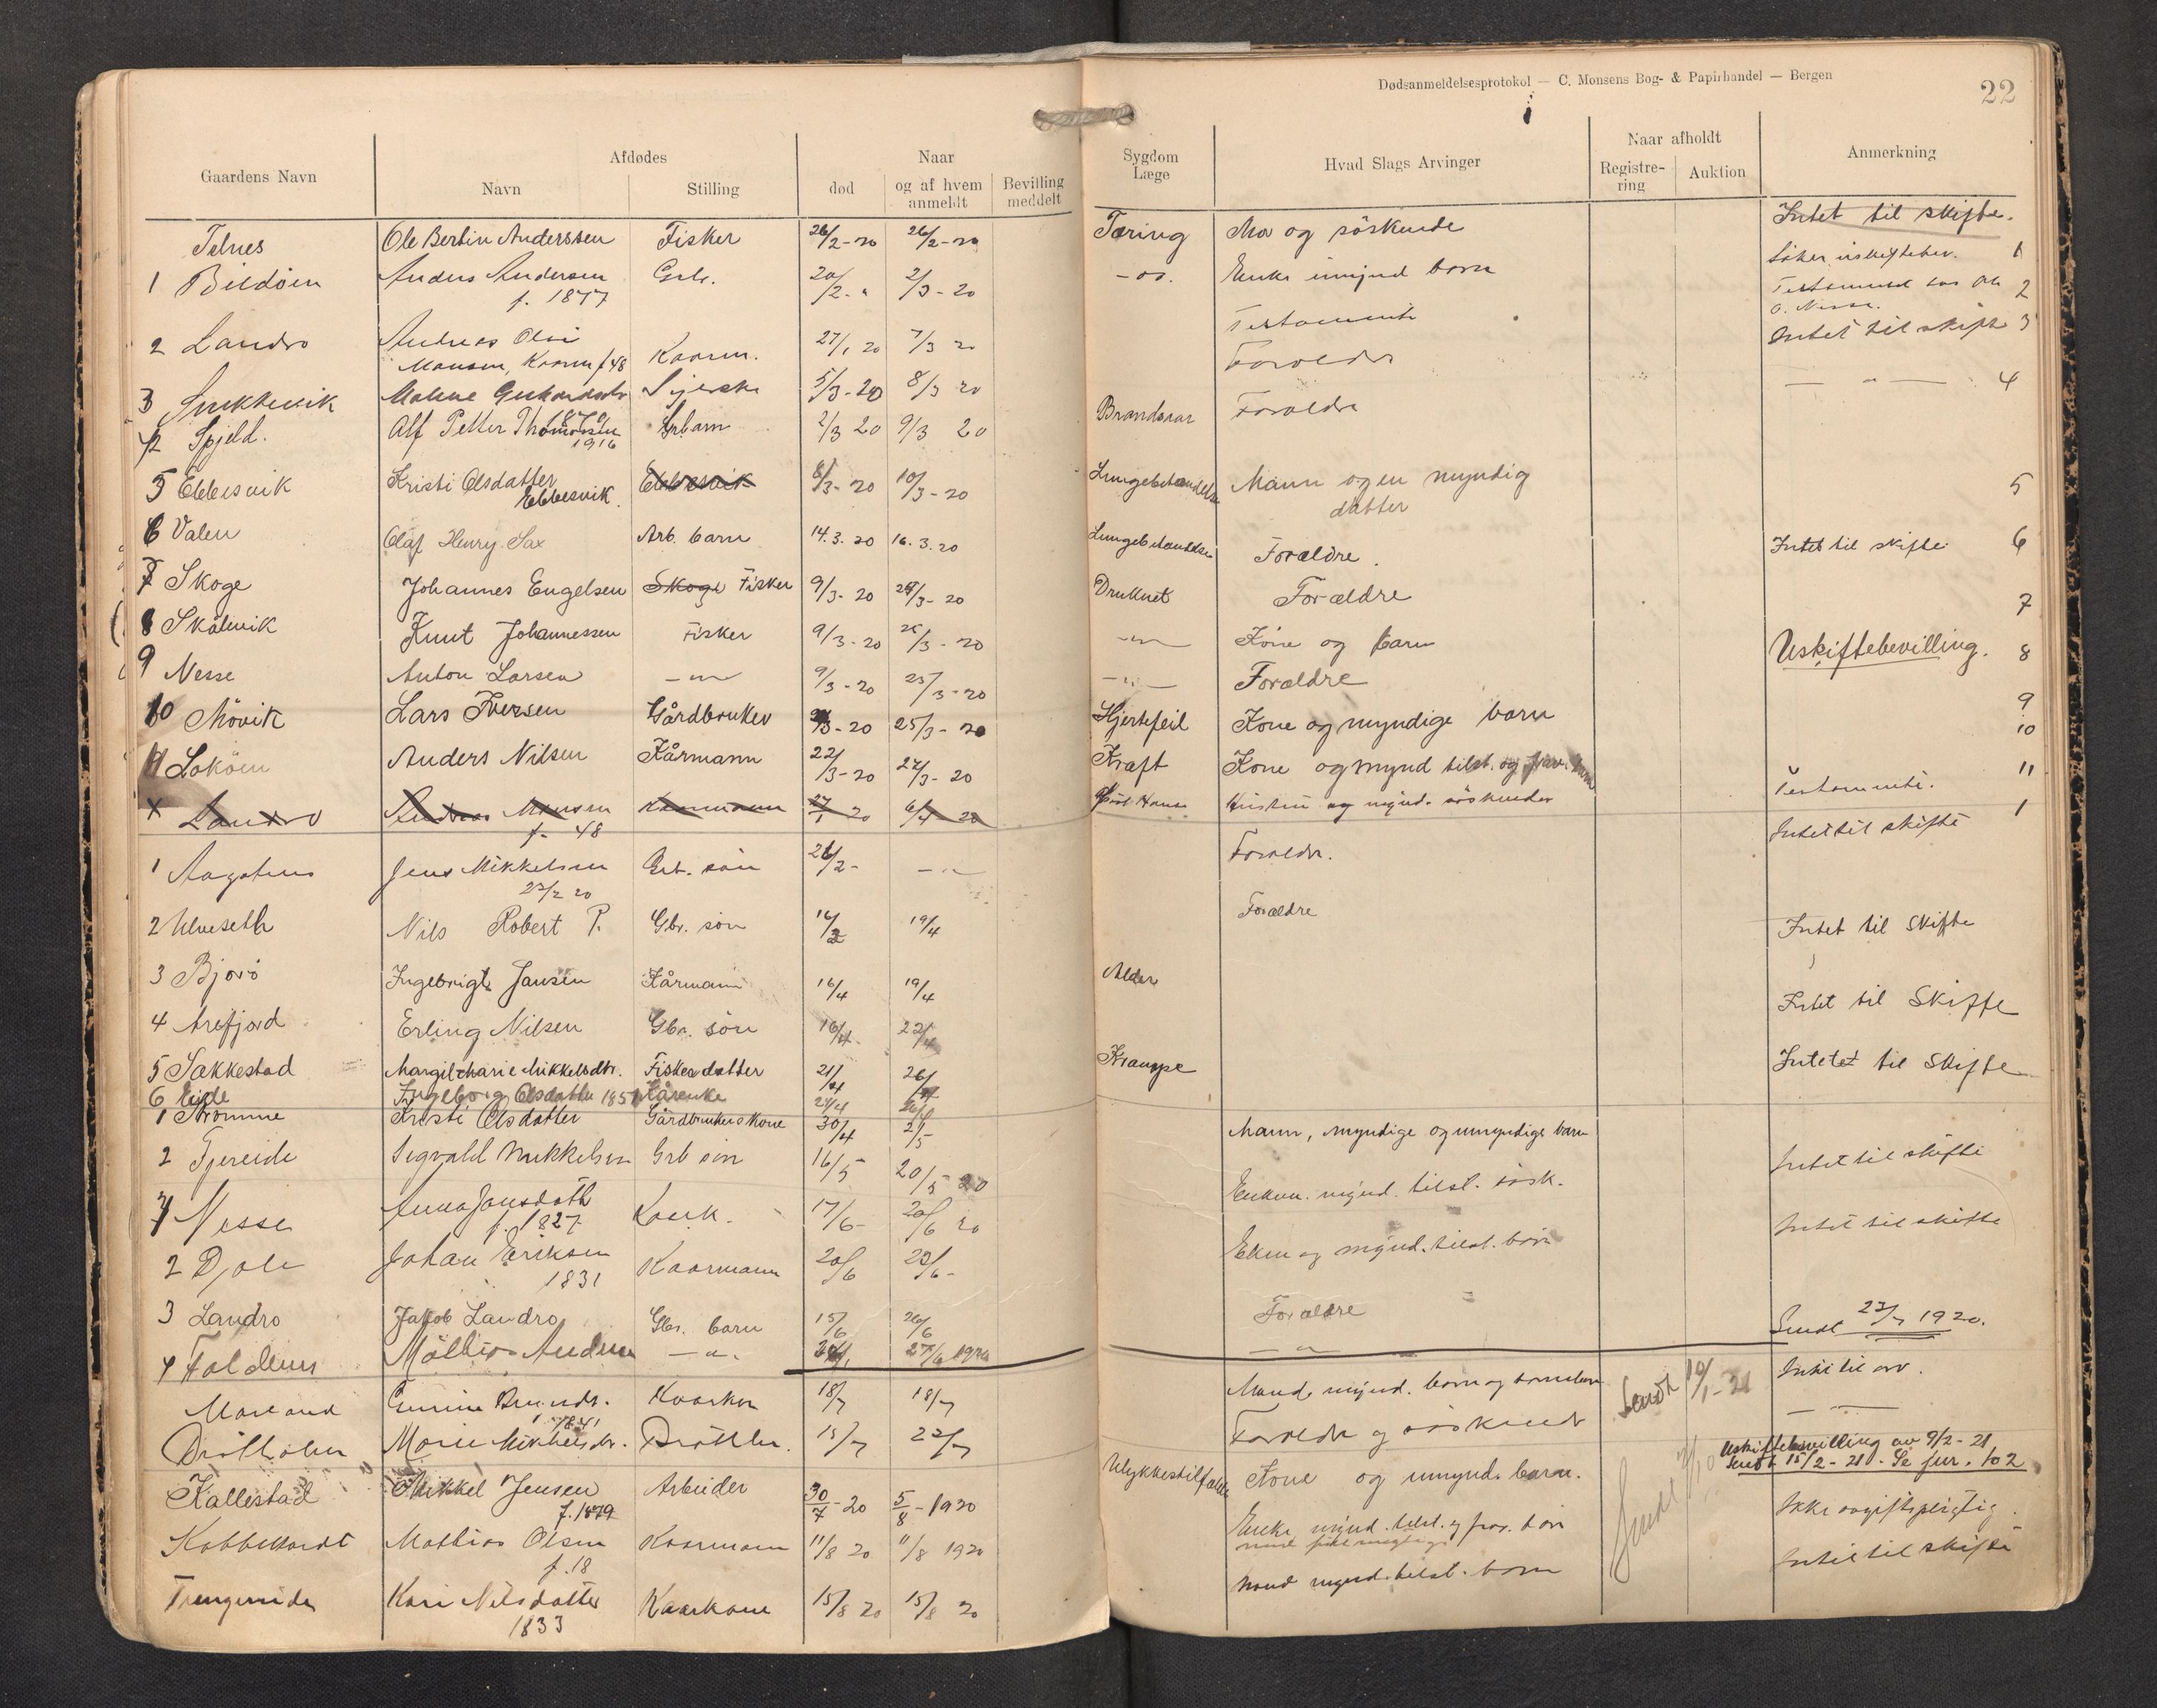 Dødsanmeldelsesprotokol — C. Monsens Bog- & Papirhandel — Bergen
22
Gaardens Navn
Afdødes
Navn
Stilling
Naar
død
og af hvem anmeldt
Bevilling meddelt
Sygdom Læge
Hvad Slags Arvinger
Naar afholdt
Registrering
Auktion
Anmerkning
Telnes Ole Bertin Anderssen Fisker 26/2-20 26/2-20 Tæring Mor og söskende Intet til skifte.
1 Bildöen Anders Andersen Grbr. 20/2-" 2/3-20 Enke umynd barn 1
f. 1877
2 Landro Andreas Olai Kaarm. 27/1 20 7/3 20 Testamente 2
Monsen, Kaarm f 48
3 Syerske 5/3-20 8/3 20 Foreldre Intet til skifte 3
1879
/2 Spjeld. Alf Petter Thomassen Grbarn 2/3 20 9/3 20 Brandsaar Foreldre — " — 4
1916
5 Ebbesvik Kristi Olsdatter Ebbesvik 8/3-20 10/3-20 Lungebetændelse Mann og en myndig 5
Ebbesvik. datter
6 Valen Olaf Henry Sax Arb. barn 14.3.20 16.3.20 Lungebetændelse Forældre. Intet til skifte 6
7 Skoge Johannes Engelsen Skoge Fisker 9/3-20 25/3-20 Druknet Forældre 7
8 Skålevik Knut Johannessen Fisker 9/3-20 25/3-20 —"— Kone og barn Uskiftebevilling. 8
9 Nesse Anton Larsen —"— 9/3-20 25/3-20 —"— Forældre 9
10 Mövik Lars Iversen Gårdbruker /3-20 25/3-20 Hjertefeil Kone og myndige barn 10
11 Loköen Anders Nilsen Kårmann 22/3-20 27/3-20 Kræft Kone og mynd tilst. og barn 11
x Landro Andreas Monsen Kaarmann 27/1 20 6/4 20 og mynd. söskender Testamente. 1
f. 48
1 Aagotnes Jens Mikkelsen Grb. sön 26/2- —"— Foreldr. Intet til skifte
22/2 20
2 Ulveseth Nils Robert P. Gbr. sön 16/3 19/4 Forældre Intet til Skifte
3 Bjorö Ingebrigt Jansen Kårmann 16/4 19/4 Alder
4 Arefjord Erling Nilsen Gbr. sön 16/4 22/4 Intet til Skifte
5 Sækkestad Margit Marie Mikkelsdtr. Fisker datter 21/4 26/4 Krampe Intetet til Skifte
6 Eide Ingeborg Olsdatter Kårenke 24/4
1 Strömme Kristi Olsdatter Gårdbrukerskone 30/4 2/5 Mann, myndige og umyndige barn
2 Tjereide Sigvald Mikkelsen Grb sön 16/5 20/5 20 Intet til skifte
1 Nesse Anna Jansdotter 17/6- 20/6 20 mynd. tilst. Intet til skifte
f. 1827
2 Djole Johan Eriksen Kaarmann 20/6 22/6- og mynd. tilst. börn
1831
3 Landro Jakob Landro Gbr. barn 15/6 26/6 Forældre
4 Foldnes Mathias —"— 27/6 1920 —"— Sendt 23/7 1920.
18/7 18/7 Mand mynd. barn og Sendt 10/1-21
1841
Marie Mikkelsdr. 15/7 22/7 Foreldr og söskende
Kallestad Mikkel Jensen Arbeider 30/7-20 5/8-1920 Ulykkestilfælde Kone og umynd. barn. Uskiftebevilling av 9/2-21
f. 1879 Sendt 15/2-21. Se jur. 102
Mathias Olsen Kaarmann 11/8 20 11/8 1920 Enke mynd. tilst. og börn Ikke avgiftspligtig.
f. 18
Kari Nilsdatter Kaarkone 15/8 20 15/8 20 Mand mynd. tilst. barn Intet til skifte
1833